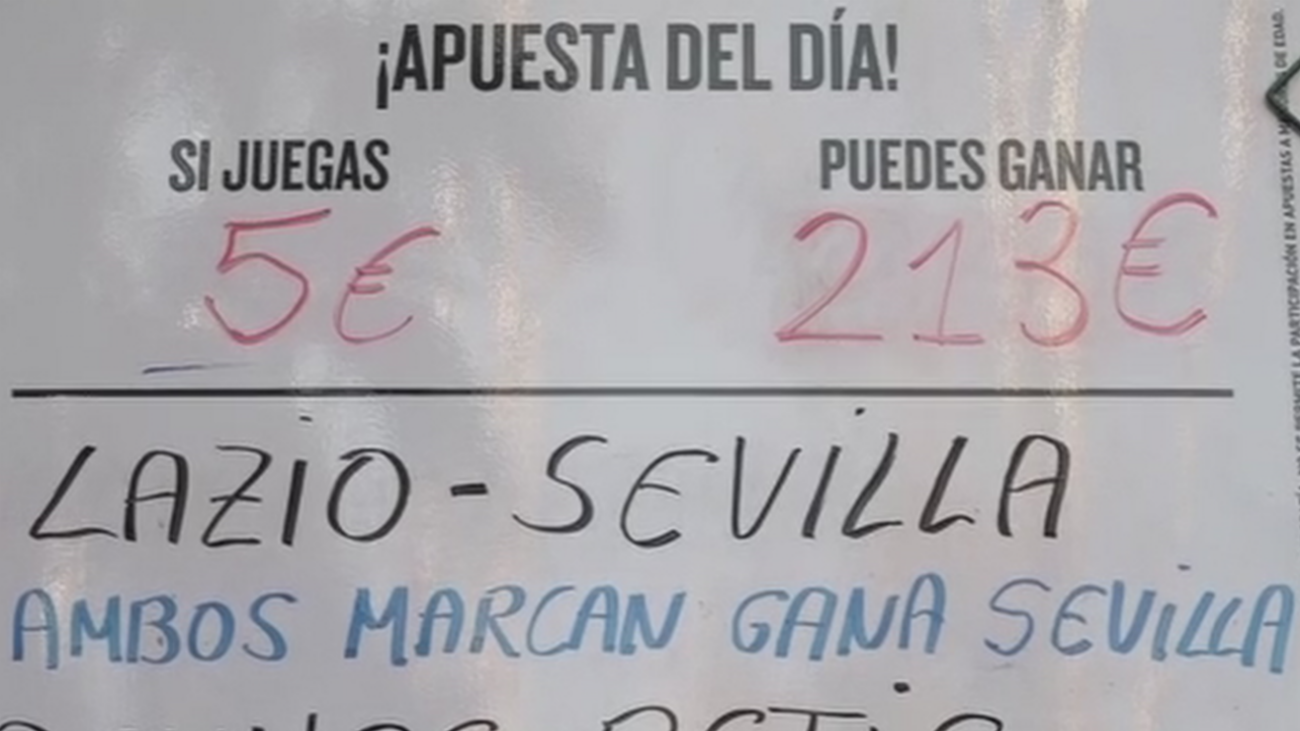 ¡APUESTA DEL DÍA!
SI JUEGAS PUEDES GANAR
5€ 213€
LAZIO - SEVILLA
AMBOS MARCAN GANA SEVILLA
PERMITE LA PARTICIPACIÓN EN APUESTAS A DE EDAD.